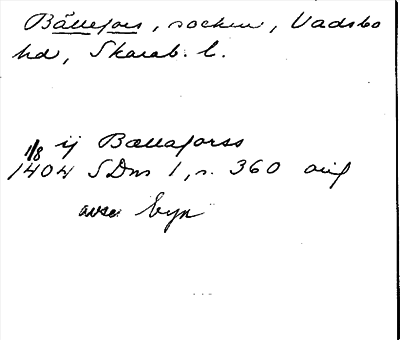 Bällefors, socken, Vadsbo
hd, Skarab. l.
1/8 ij Bællaforss
1404 SDns 1, s. 360 orig
avser byn